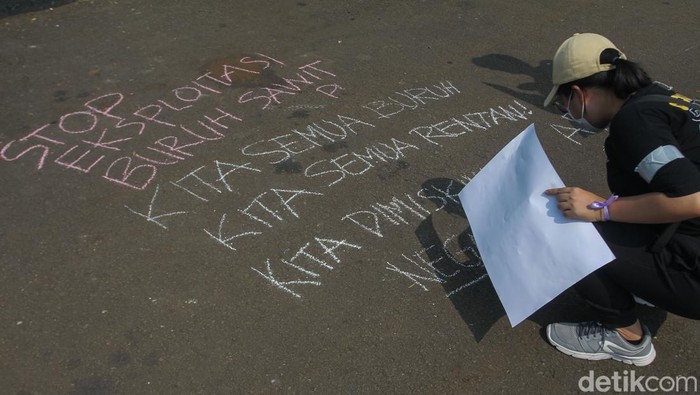 STOP
EKSPLOITASI
BURUH SAWIT
KITA SEMUA BURUH
KITA SEMUA RENTAN
KITA DIMISK
NEG
detikcom